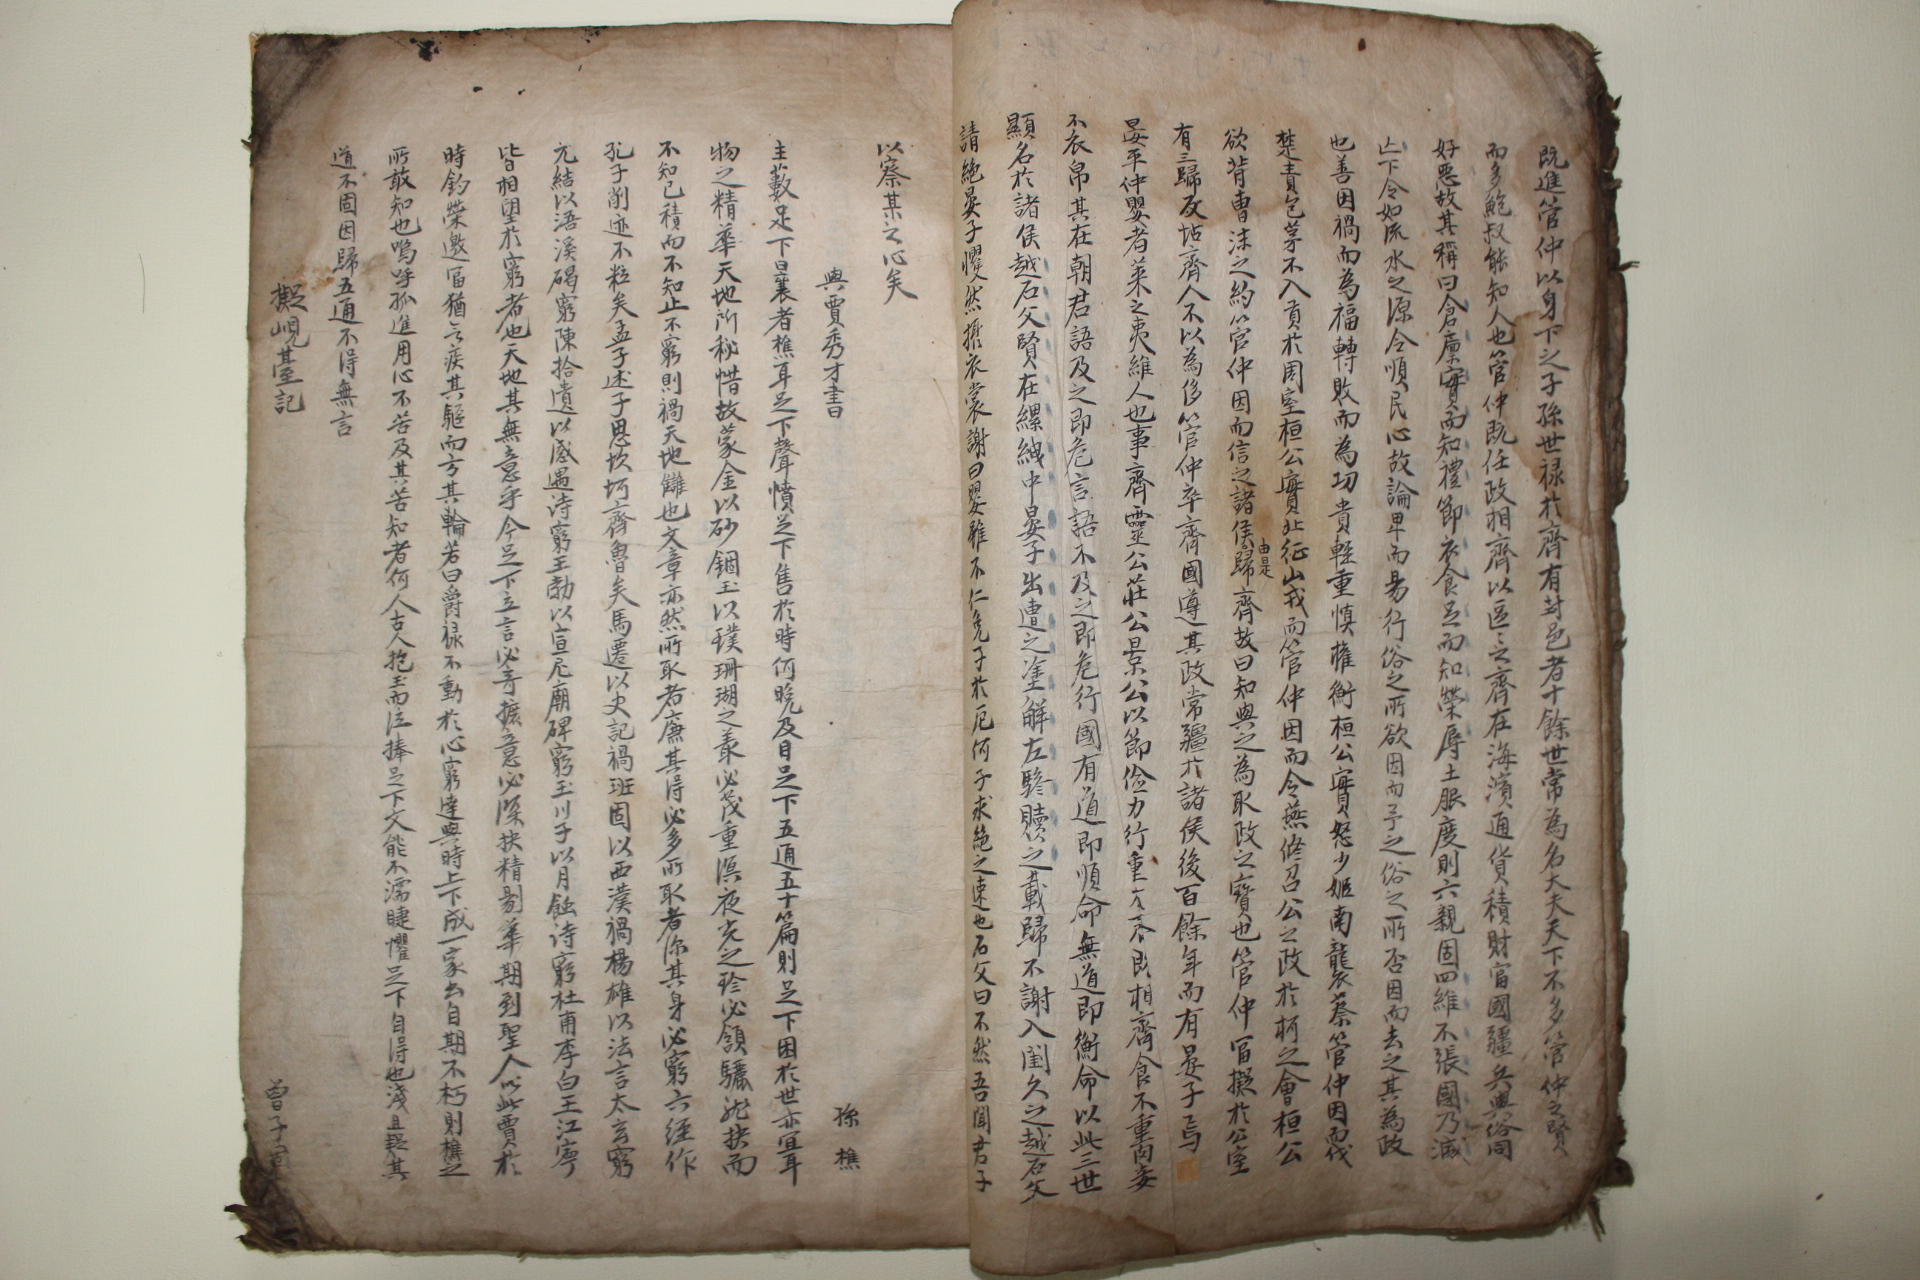 既進管仲以身下之子孫世禄於齊有封邑者十餘世常為名大夫天下不多管仲之賢
而多鮑叔能知人也管仲既任政相齊以區之齊在海濱通貨積財富國疆兵與俗同
好惡故其稱曰倉廩實而知禮節衣食足而知榮辱上服度則六親固四維不張國乃滅
亡下令如流水之源令順民心故論卑而易行俗之所欲因而予之俗之所否因而去之其為政
也善因禍而為福轉敗而為功貴輕重慎權衡桓公實怒少姬南襲蔡管仲因而伐
楚責包茅不入貢於周室桓公實北征山戎而管仲因而令燕修召公之政於柯之會桓公
欲背曹沫之約管仲因而信之諸侯由是歸齊故曰知與之為取政之寶也管仲富擬於公室
有三歸反坫齊人不以為侈管仲卒齊國遵其政常疆於諸侯後百餘年而有晏子焉
晏平仲嬰者萊之夷維人也事齊靈公莊公景公以節儉力行重於齊既相齊食不重肉妾
不衣帛其在朝君語及之即危言語不及之即危行國有道即順命無道即衡命以此三世
顯名於諸侯越石父賢在縲絏中晏子出遭之塗解左驂贖之載歸不謝入閨久之越石父
請絶晏子戄然攝衣裳謝曰嬰雖不仁免子於厄何子求絶之速也石父曰不然吾聞君子
以察某之心矣
與賈秀才書
孫樵
主藪足下曩者樵耳足下聲憤足下售於時何晩及目足下五通五十篇則足下困於世亦宜耳
物之精華天地所秘惜故蒙金以砂錮玉以璞珊瑚之叢必茂重溟夜光之珍必頷驪龍抉而
不知已積而不知止不窮則禍天地讎也文章亦然所取者廉其得必多所取者深其身必窮六經作
孔子削迹不粒矣孟子述子思坎坷齊魯矣馬遷以史記禍班固以西漢禍楊雄以法言太玄窮
元結以浯溪碣窮陳拾遺以感遇詩窮王勃以宣尼廟碑窮玉川子以月蝕詩窮杜甫李白王江寧
皆相望於窮者也天地其無意乎今足下立言必竒摭意必深抉精剔華期到聖人以此賈於
時釣榮邀富猶之疾其驅而方其輪若曰爵禄不動於心窮達與時上下成一家書自期不朽則樵之
所敢知也嗚呼孤進用心不苦及其苦知者何人古人抱玉而泣捧足下文能不濡睫懼足下自得也淺且疑其
道不固因歸五通不得無言
擬峴臺記
曾子固